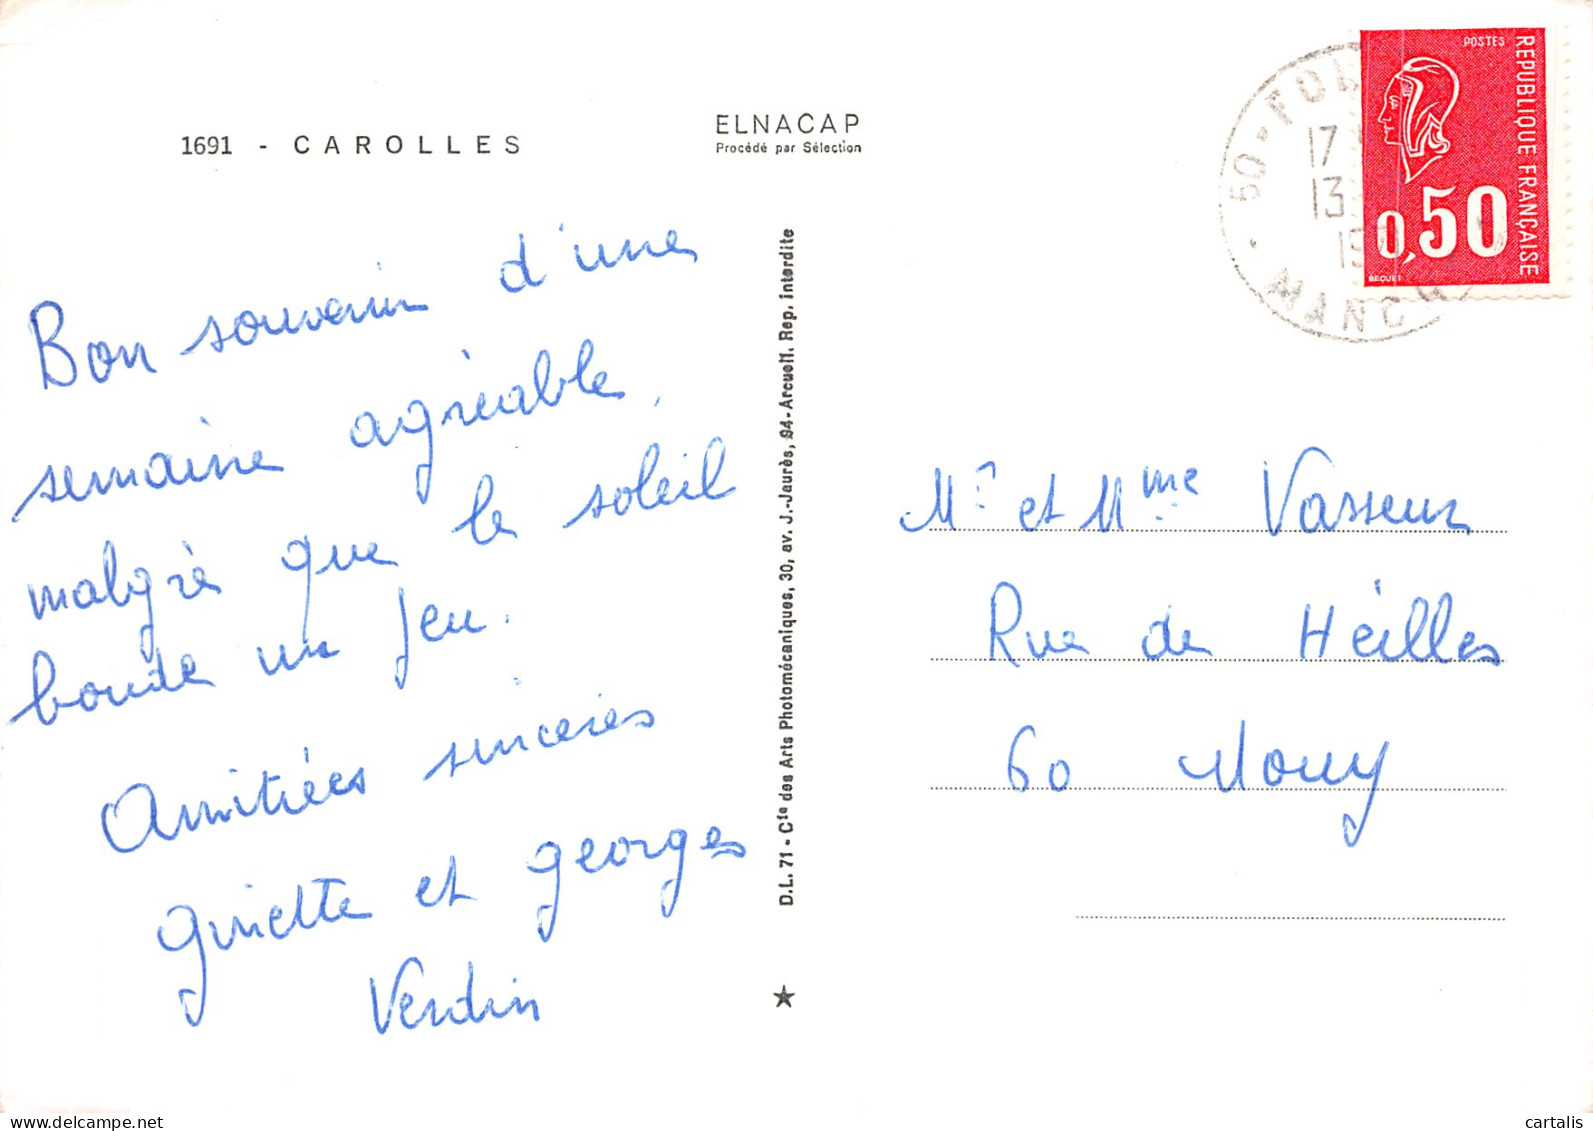 1691 - CAROLLES
ELNACAP
Procédé par Sélection
Bon souvenir d'une
semaine agréable,
malgré que le soleil
boude un peu.
Amitiées sincères
ginette et georges
Verdin
D.L. 71 - Cie des Arts Photomécaniques, 30, av. J.-Jaurès, 94-Arcueil. Rep. interdite
POSTES
REPUBLIQUE FRANÇAISE
0,50
BEQUET
50
17
13
MANCH
Mr et Mme Vasseur
Rue de Héilles
60 Mouy
cartalis